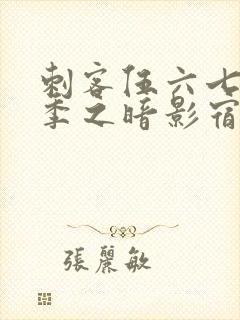 刺客伍六七
季之暗影宿
張麗敏